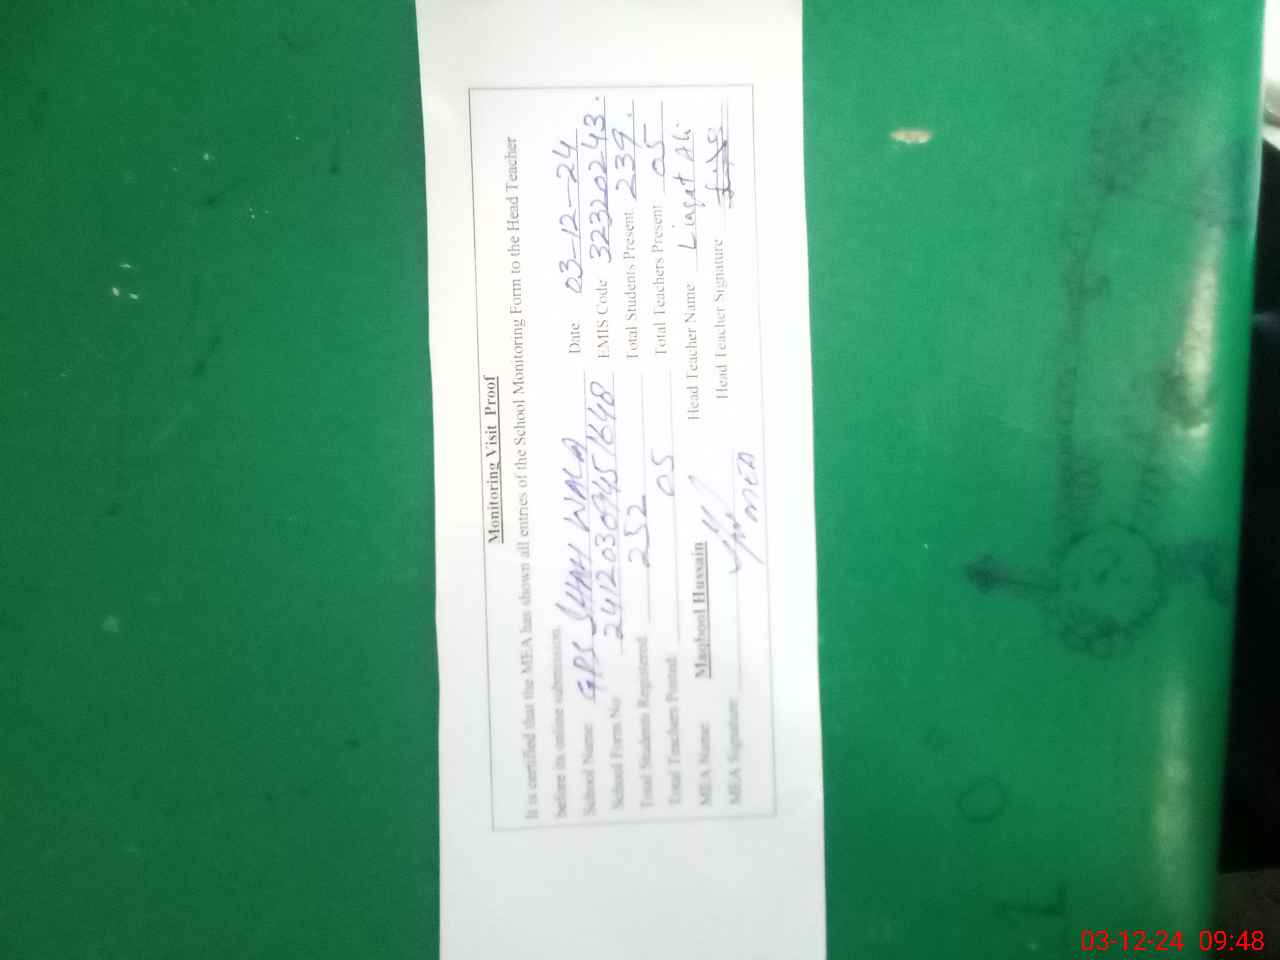 Monitoring Visit Proof
It is certified that the MEA has shown all entries of the School Monitoring Form to the Head Teacher
before its online submission.
School Name GPS WALA Date 03-12-24
School Form No EMIS Code 32320243.
Total Students Registered 252 Total Students Present 239.
Total Teachers Posted 05 Total Teachers Present 05
MEA Name Maqbool Hussain Head Teacher Name Liaqat Ali
MEA Signature MEA Head Teacher Signature
03-12-24 09:48